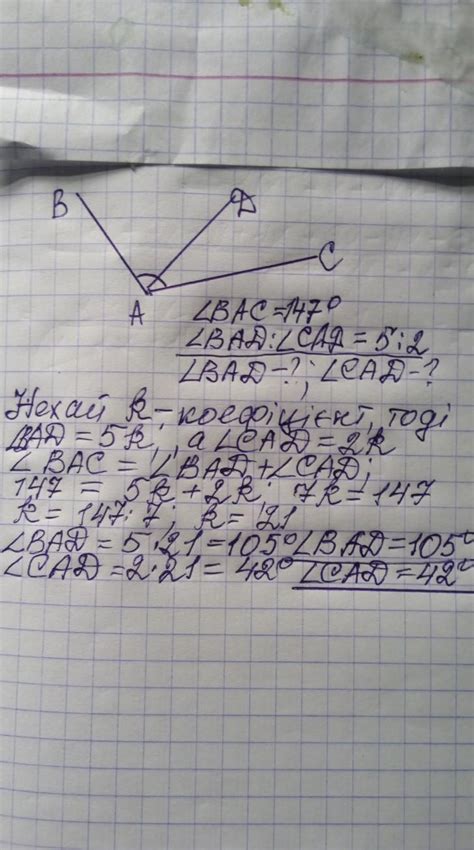 B
D
C
A
∠BAC=147°
∠BAD:∠CAD=5:2
∠BAD-?; ∠CAD-?
Нехай k-коефіцієнт, тоді
∠BAD=5k, а ∠CAD=2k
∠BAC=∠BAD+∠CAD;
147 = 5k+2k; 7k=147
k=147:7; k=21
∠BAD=5·21=105° ∠BAD=105°
∠CAD=2·21=42° ∠CAD=42°